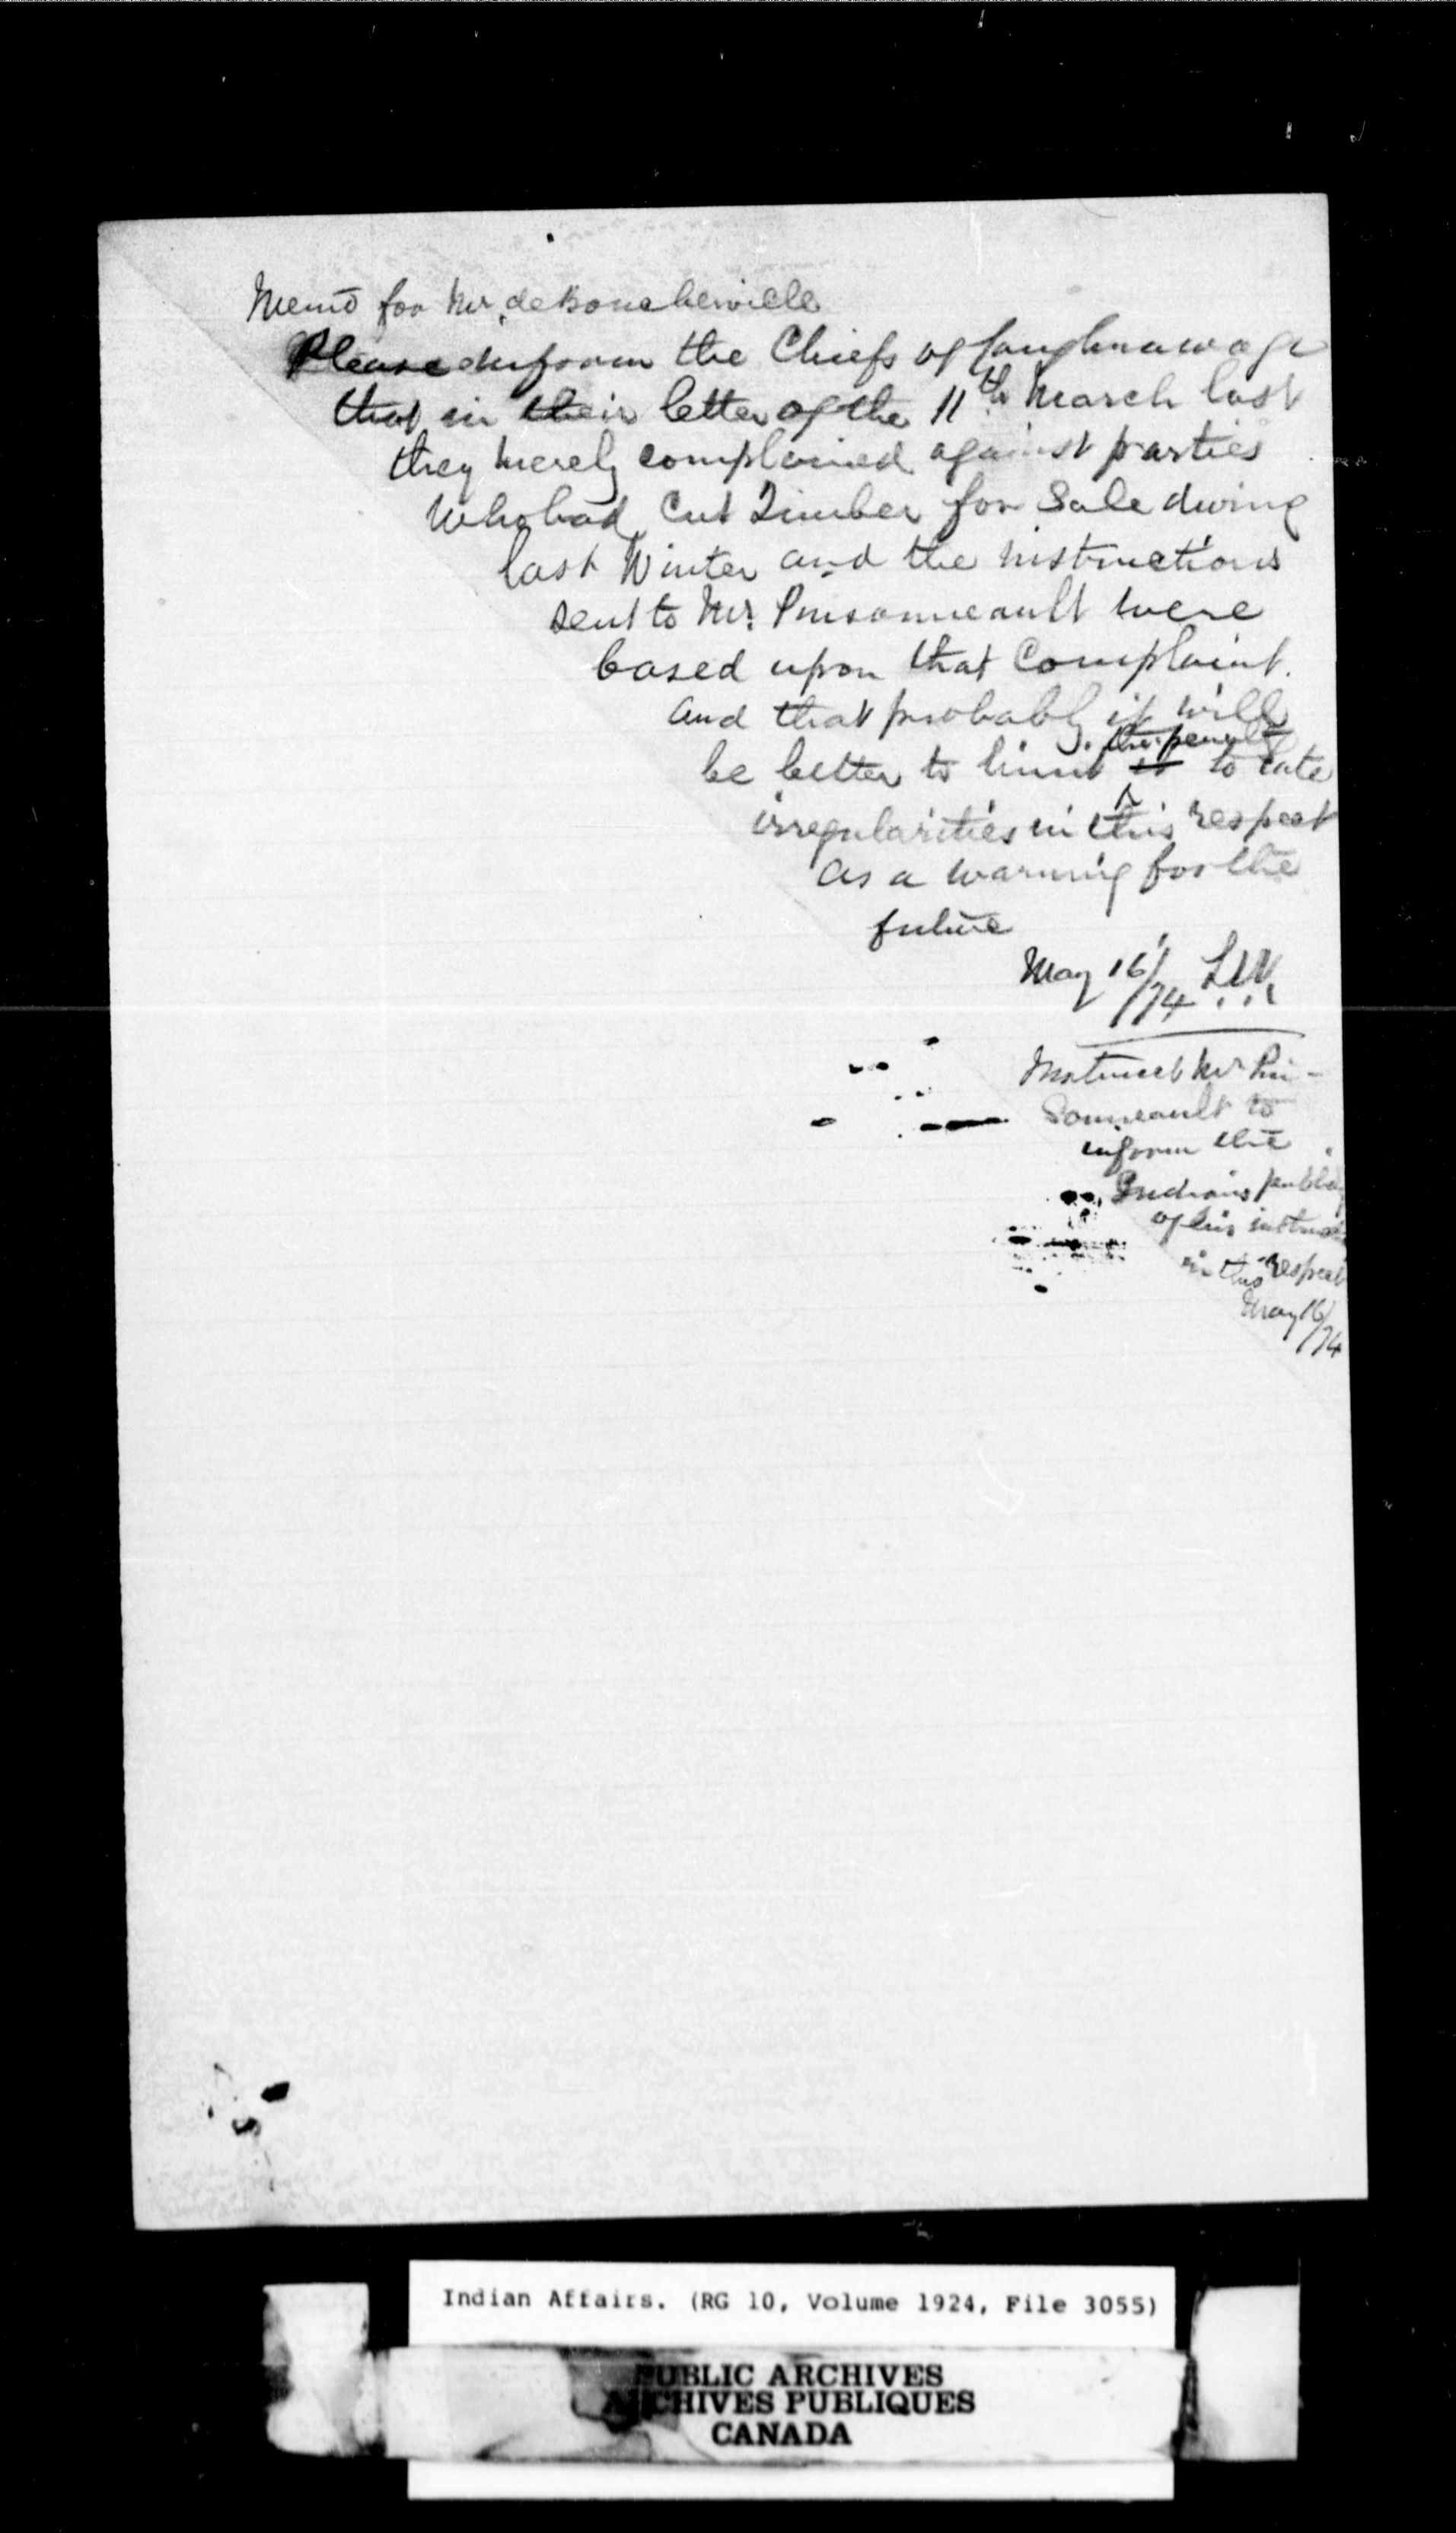 Memo for Mr. de Boucherville
Please inform the Chiefs of Caughnawaga
that in their letter of the 11th March last
they merely complained against parties
who had cut Timber for Sale during
last Winter and the instructions
sent to Mr. Pinsonneault were
based upon that Complaint.
and that probably it will
be better to limit it the penalty to late
irregularities in this respect
as a warning for the
future
May 16/74 L.V.
Instruct Mr Pin-
sonneault to
inform the
Indians
of his
in this respect
May 16/74
Indian Affairs. (RG 10, Volume 1924, File 3055)
PUBLIC ARCHIVES
ARCHIVES PUBLIQUES
CANADA